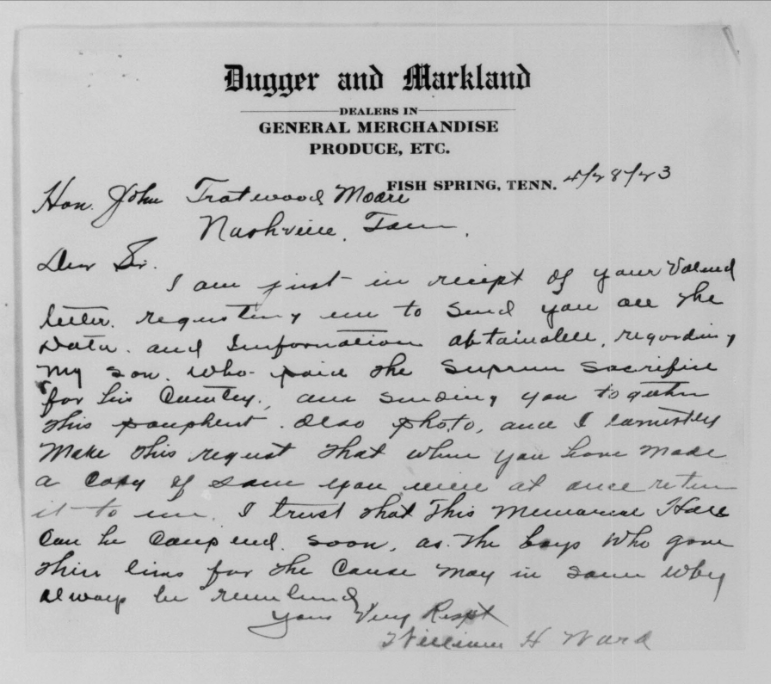 Dugger and Markland
DEALERS IN
GENERAL MERCHANDISE
PRODUCE, ETC.
FISH SPRING, TENN. 4/28/23
Hon. John Trotwood Moore
Nashville, Tenn.
Dear Sir.
I am just in recipt of your Valued
letter. requesting me to Send you all the
Data. and Information obtainable, regarding
My Son. Who paid the Suprem Sacrifice
for his Country, am sending you together
this pamphlet. Also photo, and I earnestly
Make this request that when you have made
a Copy of Same you will at once return
it to me. I trust that this Memorial Hall
Can be soon, as the boys Who gave
their lives for the Cause May in Some Way
always be
Yours Very Respt
William H Ward